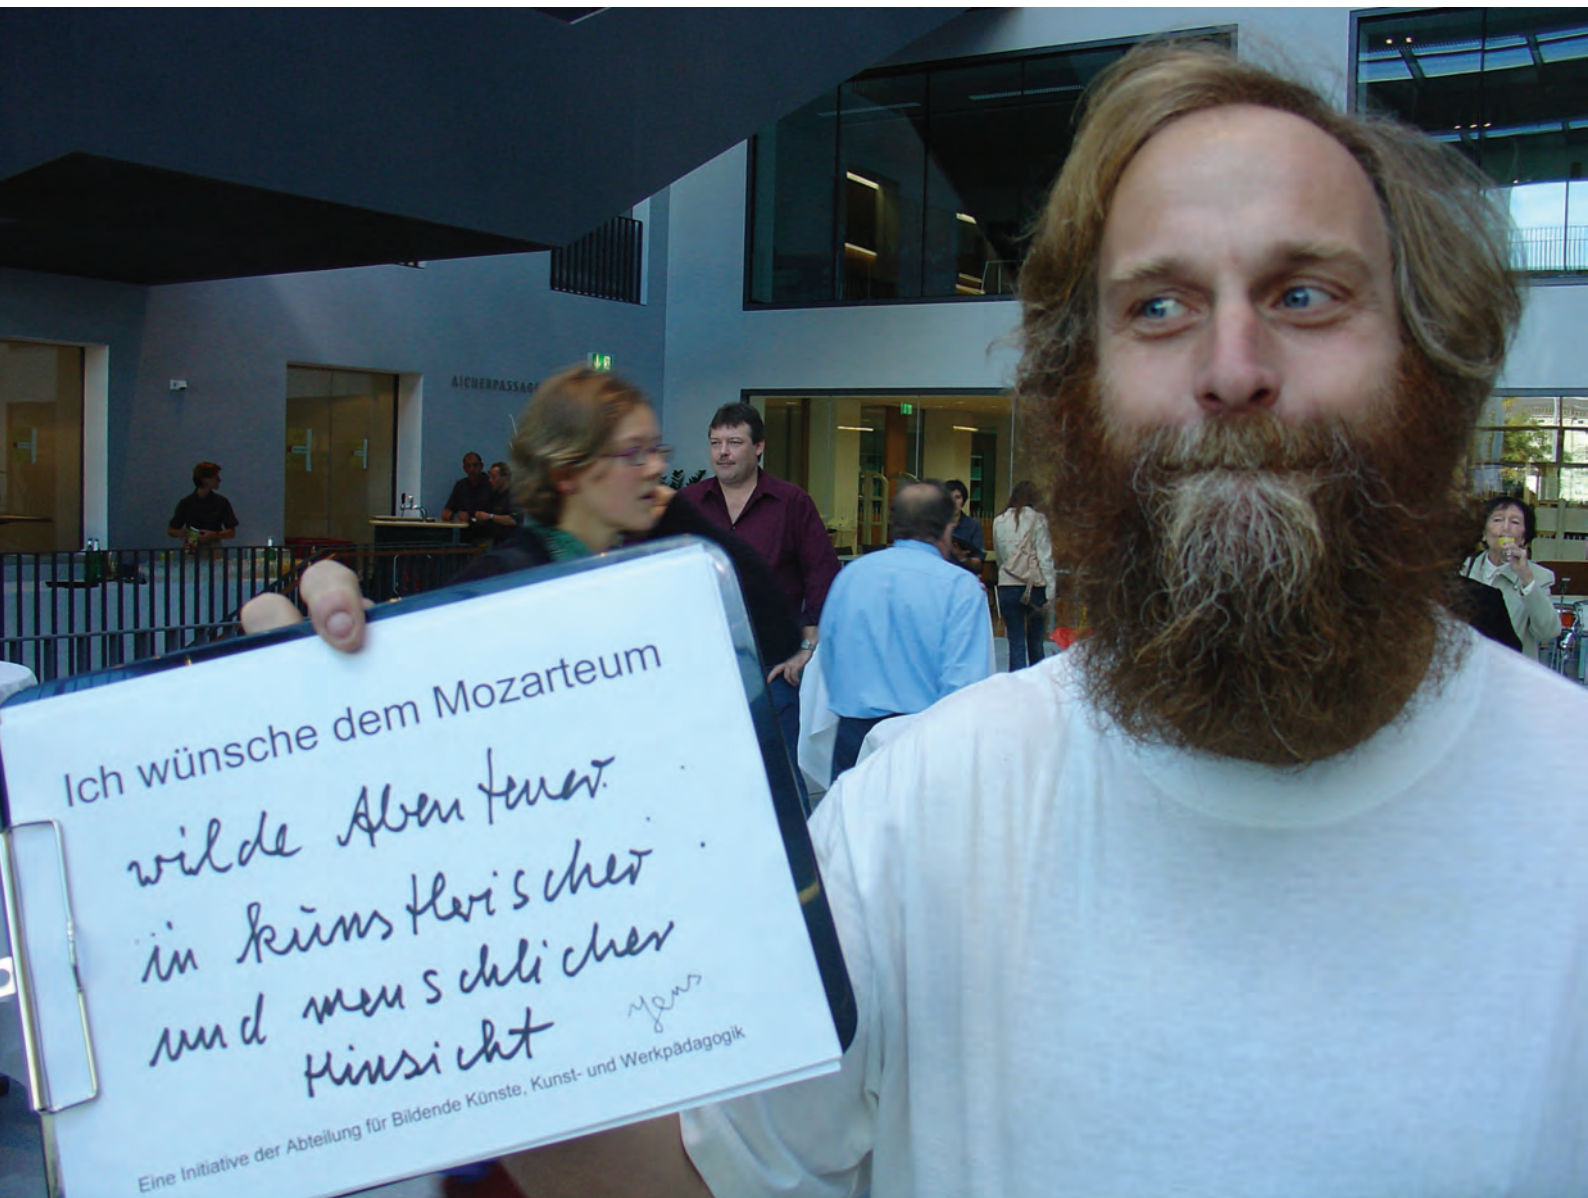 AICHERPASSAG
Ich wünsche dem Mozarteum
wilde Abenteuer
in künstlerischer
und menschlicher
Hinsicht
Jens
Eine Initiative der Abteilung für Bildende Künste, Kunst- und Werkpädagogik